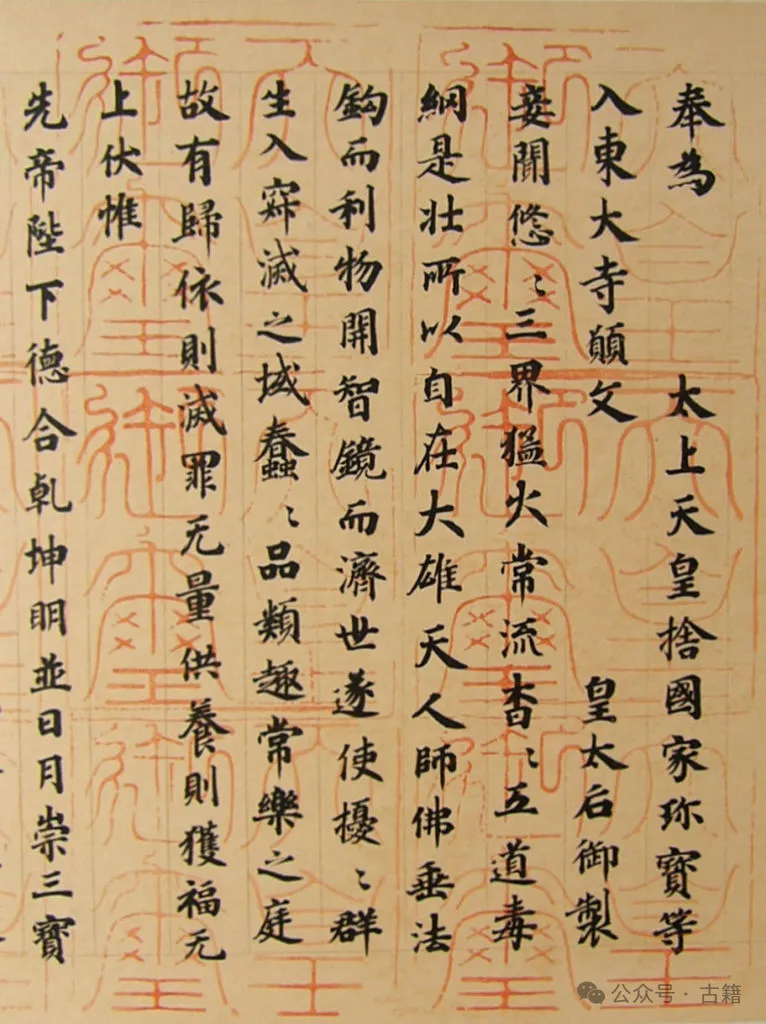 奉為　太上天皇捨國家珎寶等
入東大寺願文　皇太后御製
妾聞悠〻三界猛火常流杳〻五道毒
網是壯所以自在大雄天人師佛垂法
鈎而利物開智鏡而濟世遂使擾〻群
生入寂滅之域蠢〻品類趣常樂之庭
故有歸依則滅罪无量供養則獲福无
上伏惟
先帝陛下德合乾坤明並日月崇三寶
天皇御璽
公众号 · 古籍